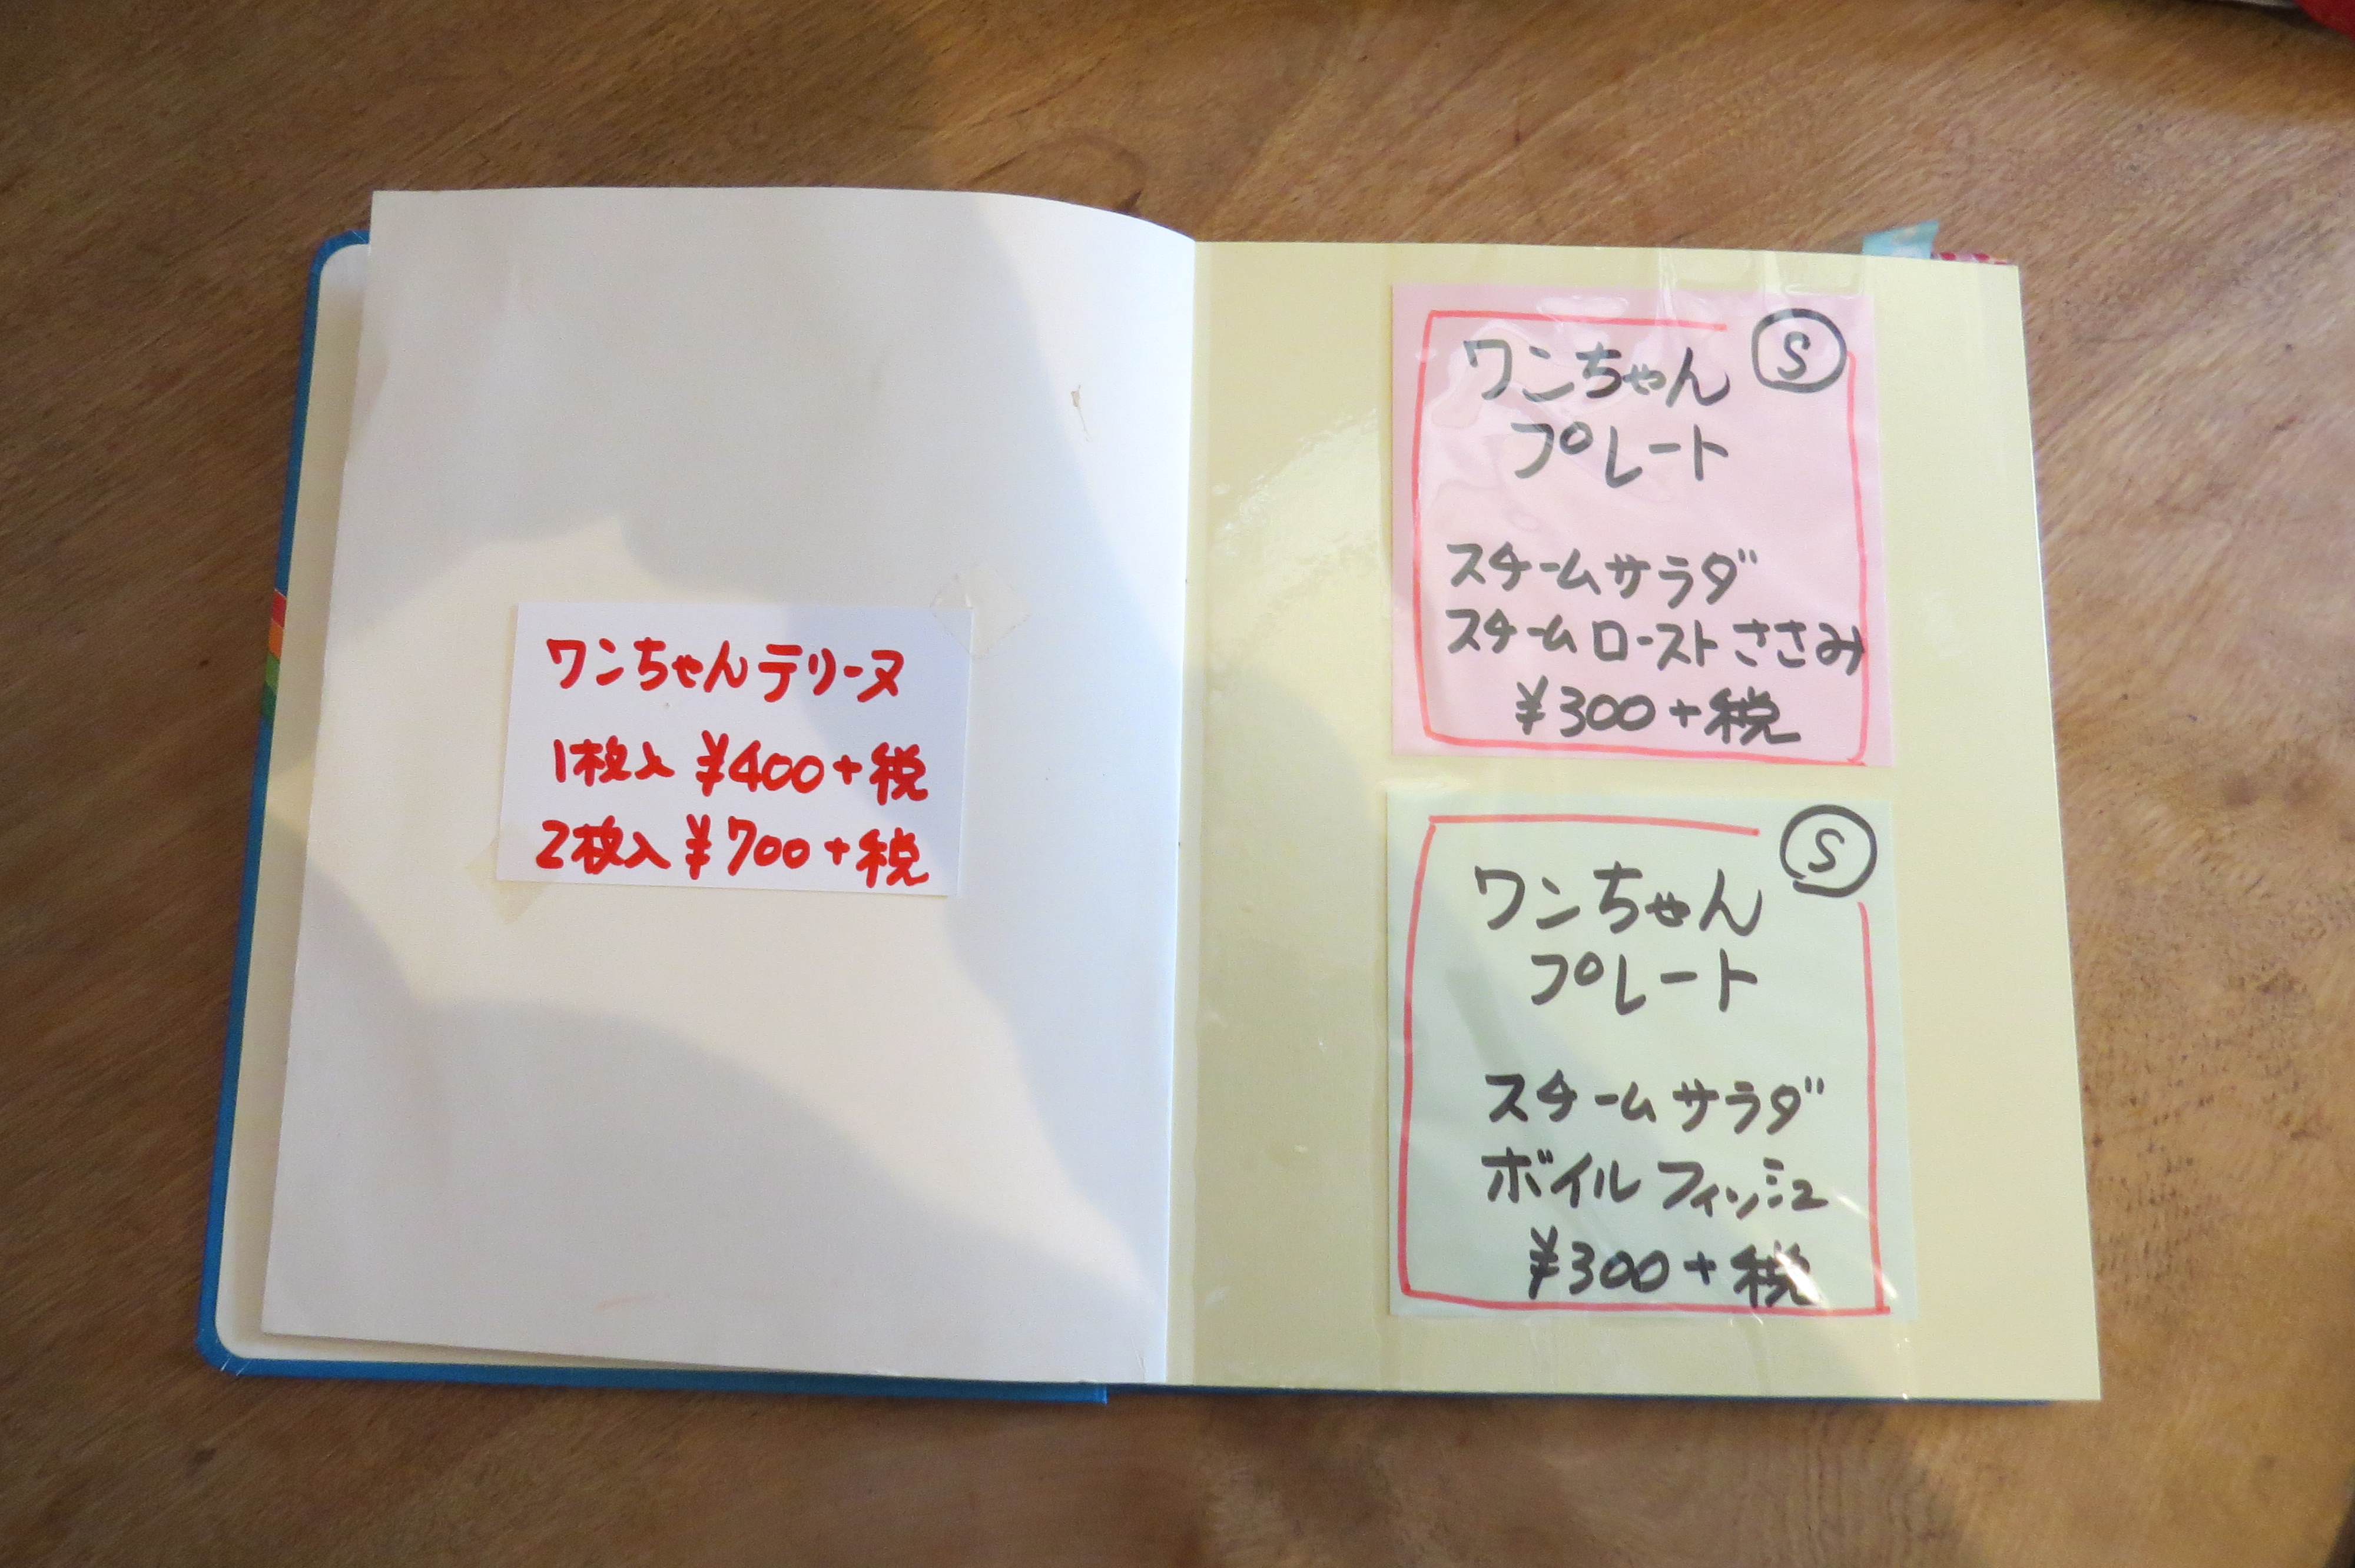 ワンちゃんテリーヌ
1枚入 ¥400+税
2枚入 ¥700+税
ワンちゃん Ⓢ
プレート
スチームサラダ
スチームローストささみ
¥300+税
ワンちゃん Ⓢ
プレート
スチームサラダ
ボイルフィッシュ
¥300+税